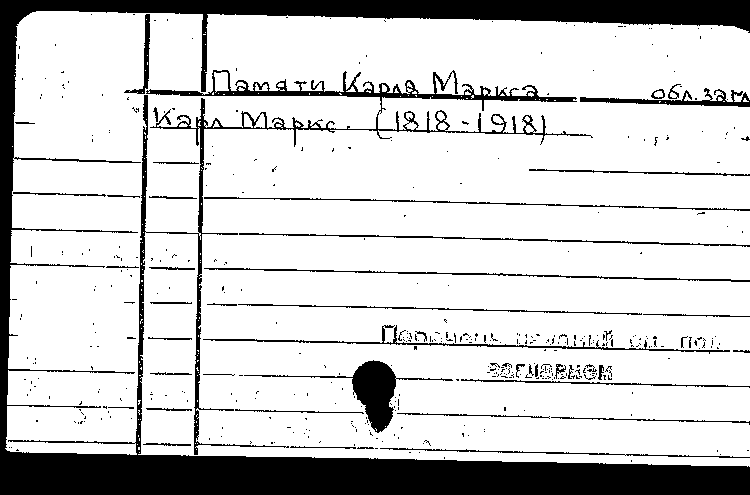 Памяти Карла Маркса. обл. загл
Карл Маркс. (1818-1918).
Перечень изданий см. под
заглавием